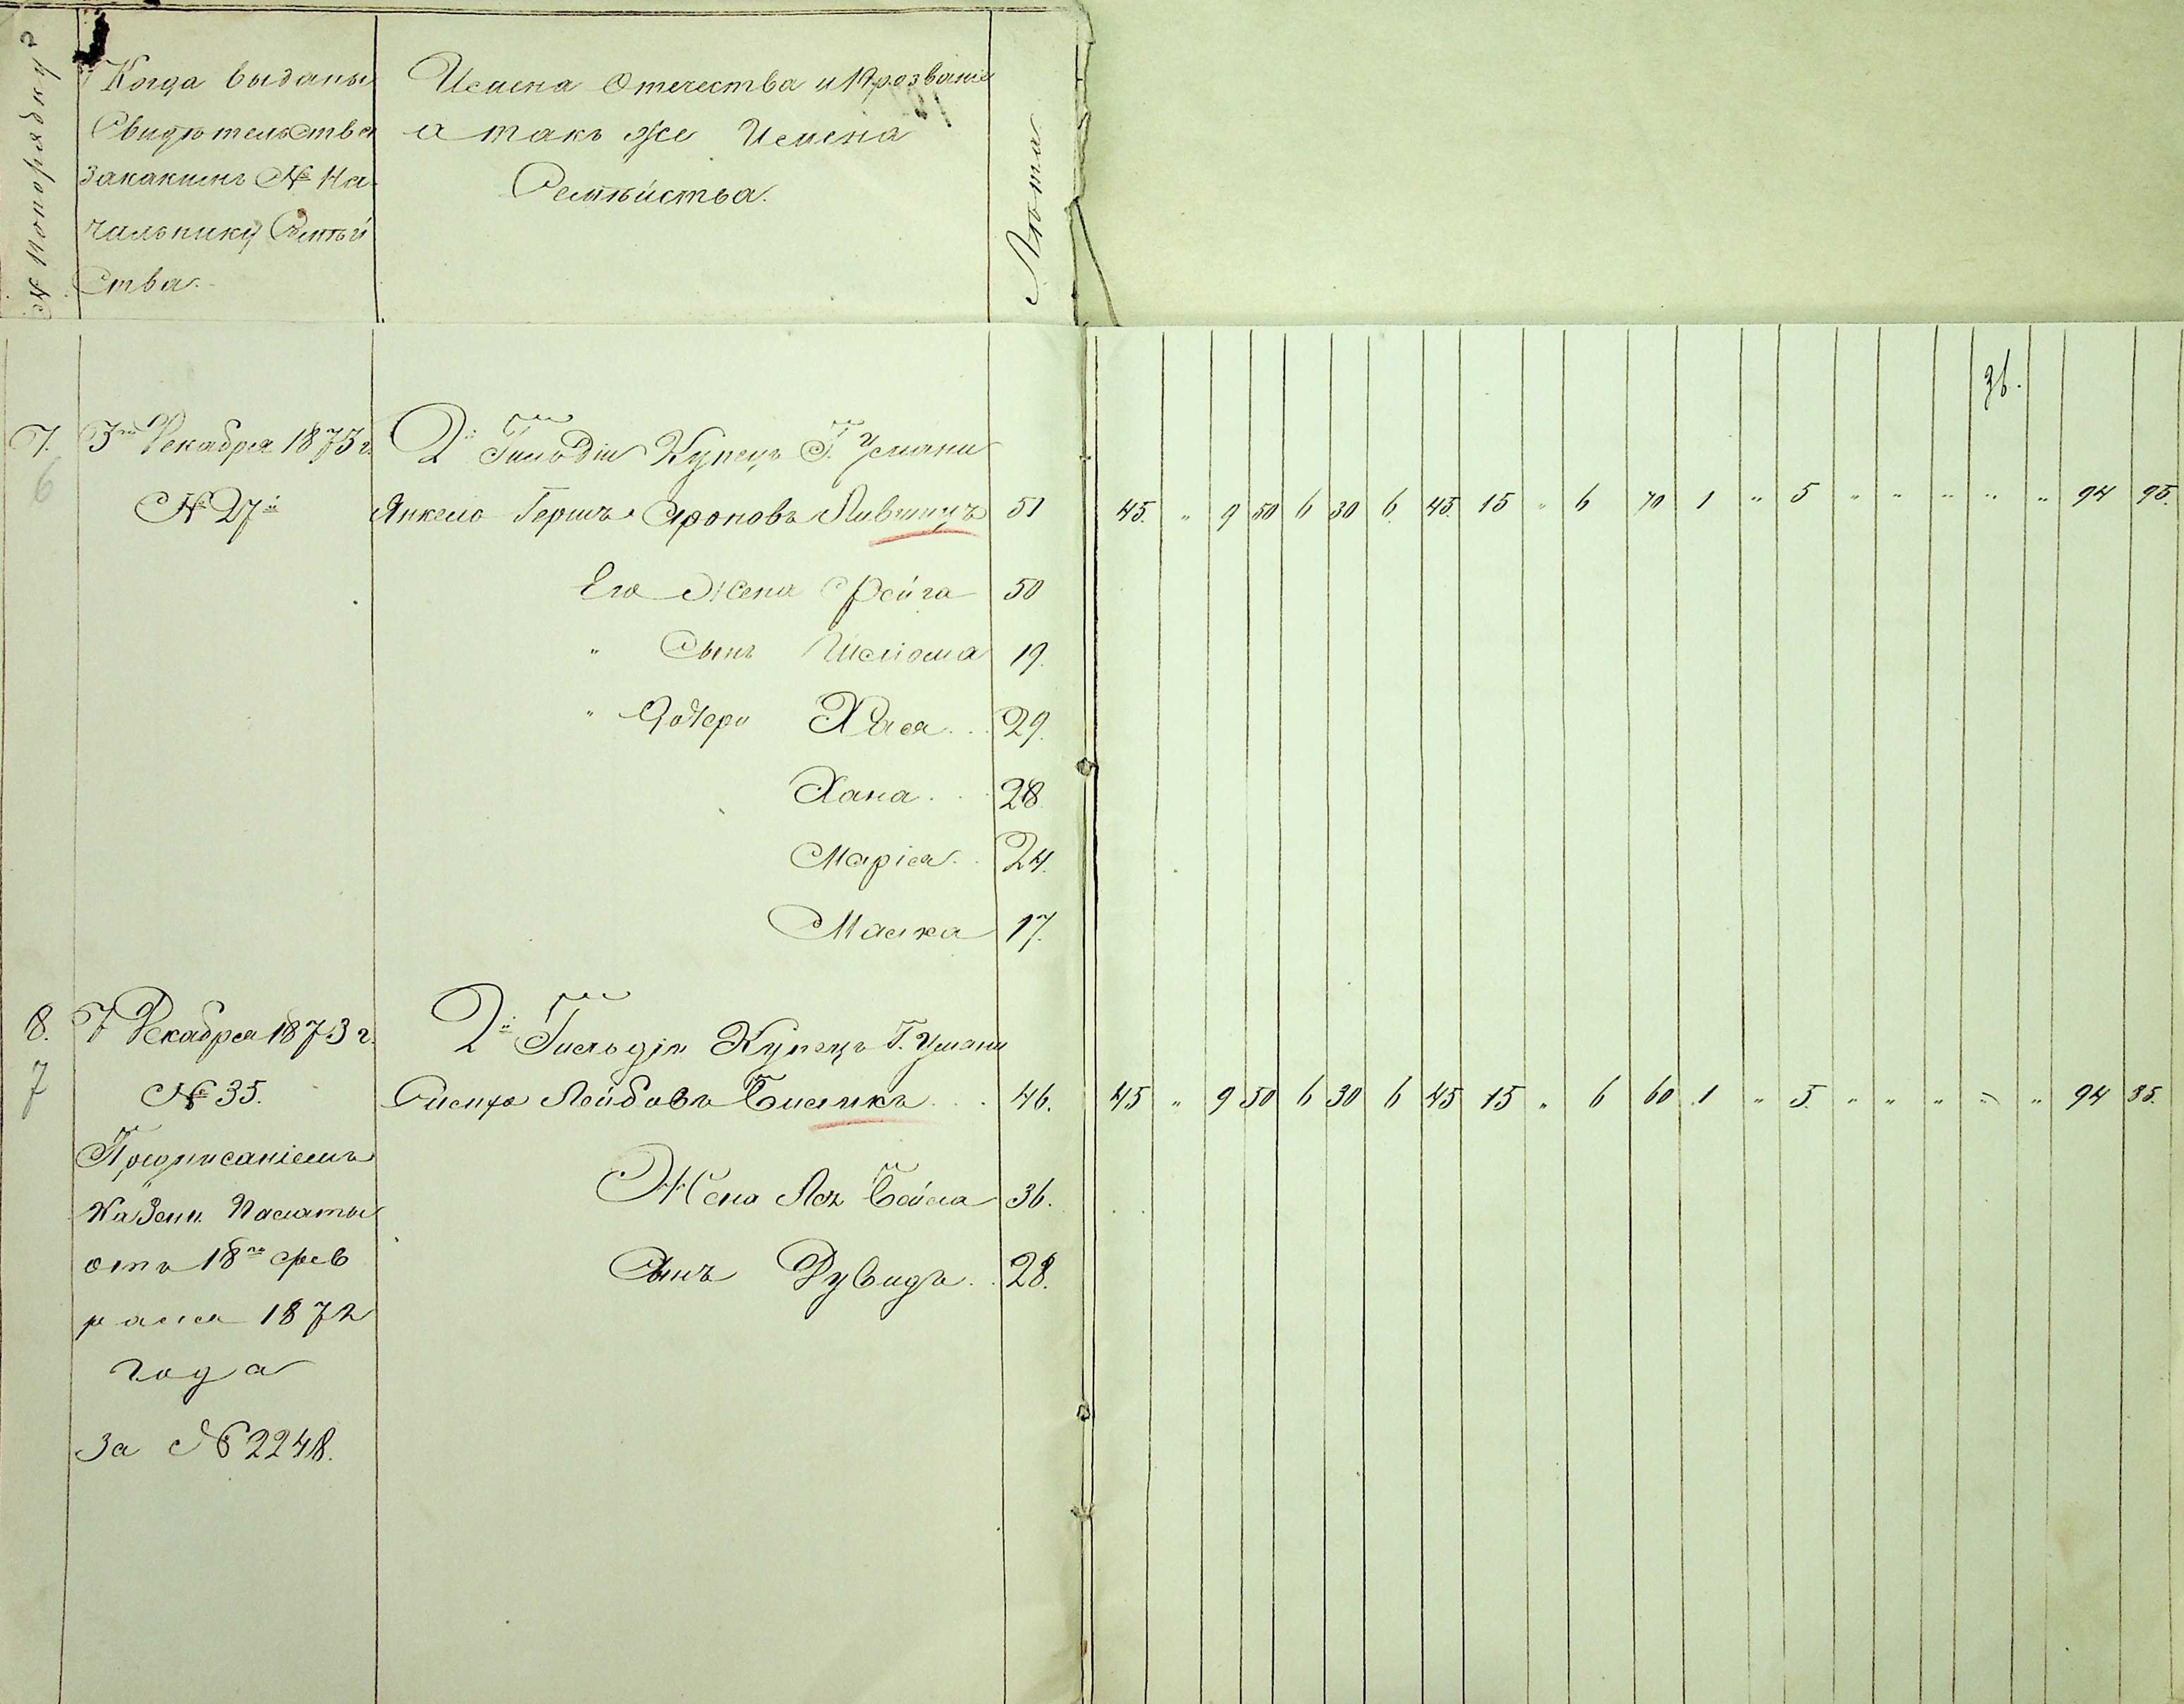 № попорядку
Когда выданы
Свидѣтельства
Закакимъ № На-
чальнику Семѣй
Ства.
Имена Отечества и Прозванiе
а такъ же Имена
Семѣйства.
Лѣта
36.
7. 3го Декабря 1873 г. 2й Гильдiи Купецъ Г. Умани
6 № 27й Янкель Гершъ Ароновъ Лившицъ 51 45. " 9 50 6 30 6 45 15 " 6 70 1 " 5 " " " " " 94 95.
Его Жена Фейга 50
" Сынъ Шлiома 19.
" Дочери Хая . . 29.
Хана . . 28
Марiя . . 24.
Малка 17.
8. 7 Декабря 1873 г. 2й Гильдiи Купецъ Г. Умани
7 № 35. Лейбовъ . . 46. 45 " 9 50 6 30 6 45 15 " 6 60 1 " 5. " " " " " 94 85.
Предписанiемъ
Казенн. Палаты Жена Бейла 36.
отъ 18го Фев Сынъ Дувидъ . . 28.
раля 1872
года
За № 2248.